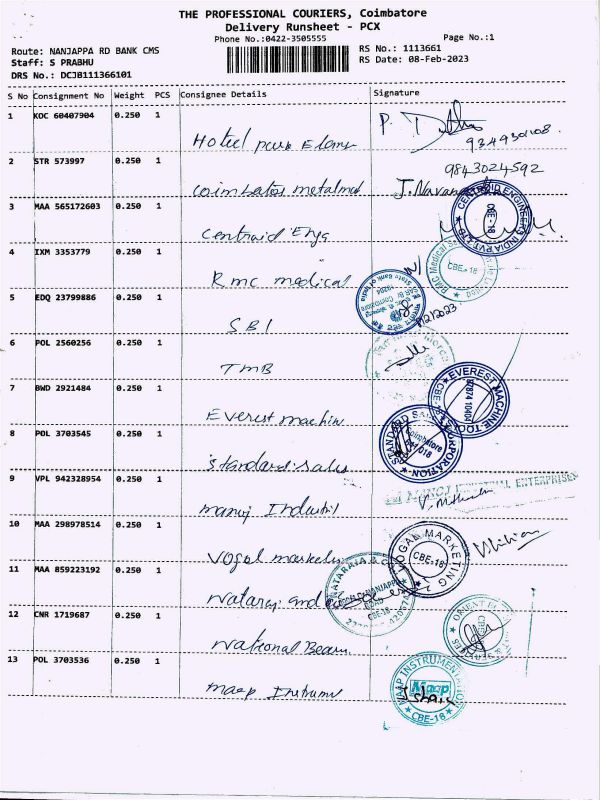 THE PROFESSIONAL COURIERS, Coimbatore
Delivery Runsheet - PCX
Phone No.:0422-3505555
Page No.:1
Route: NANJAPPA RD BANK CMS
RS No.: 1113661
Staff: S PRABHU
RS Date: 08-Feb-2023
DRS No.: DCJB111366101
S No Consignment No Weight PCS Consignee Details Signature
1 KOC 60407904 0.250 1
Hotel
2 STR 573997 0.250 1
9843024592
Coimbatore metal
3 MAA 565172603 0.250 1
CENTROID ENGINEERS INDIA PVT LTD
CBE - 18
Centroid Engg
4 IXM 3353779 0.250 1
CBE-18
Rmc medical
5 EDQ 23799886 0.250 1
State Bank of India
SBI
6 POL 2560256 0.250 1
TMB
7 BWD 2921484 0.250 1
EVEREST MACHINE TOOLS
Everest machin
8 POL 3703545 0.250 1
STANDARD SALES CORPORATION
Coimbatore
641 018
Standard Sales
9 VPL 942328954 0.250 1
MANOJ INDUSTRIAL ENTERPRISES
manoj Industril
10 MAA 298978514 0.250 1
VOGAL MARKETING
CBE-18
Vogal marketing
11 MAA 859223192 0.250 1
NATARAJA &
CBE-18
Nataraj and
12 CNR 1719687 0.250 1
ORIENT
National
13 POL 3703536 0.250 1
MAAP INSTRUMENTATION
Maap
CBE-18
maap Instrume